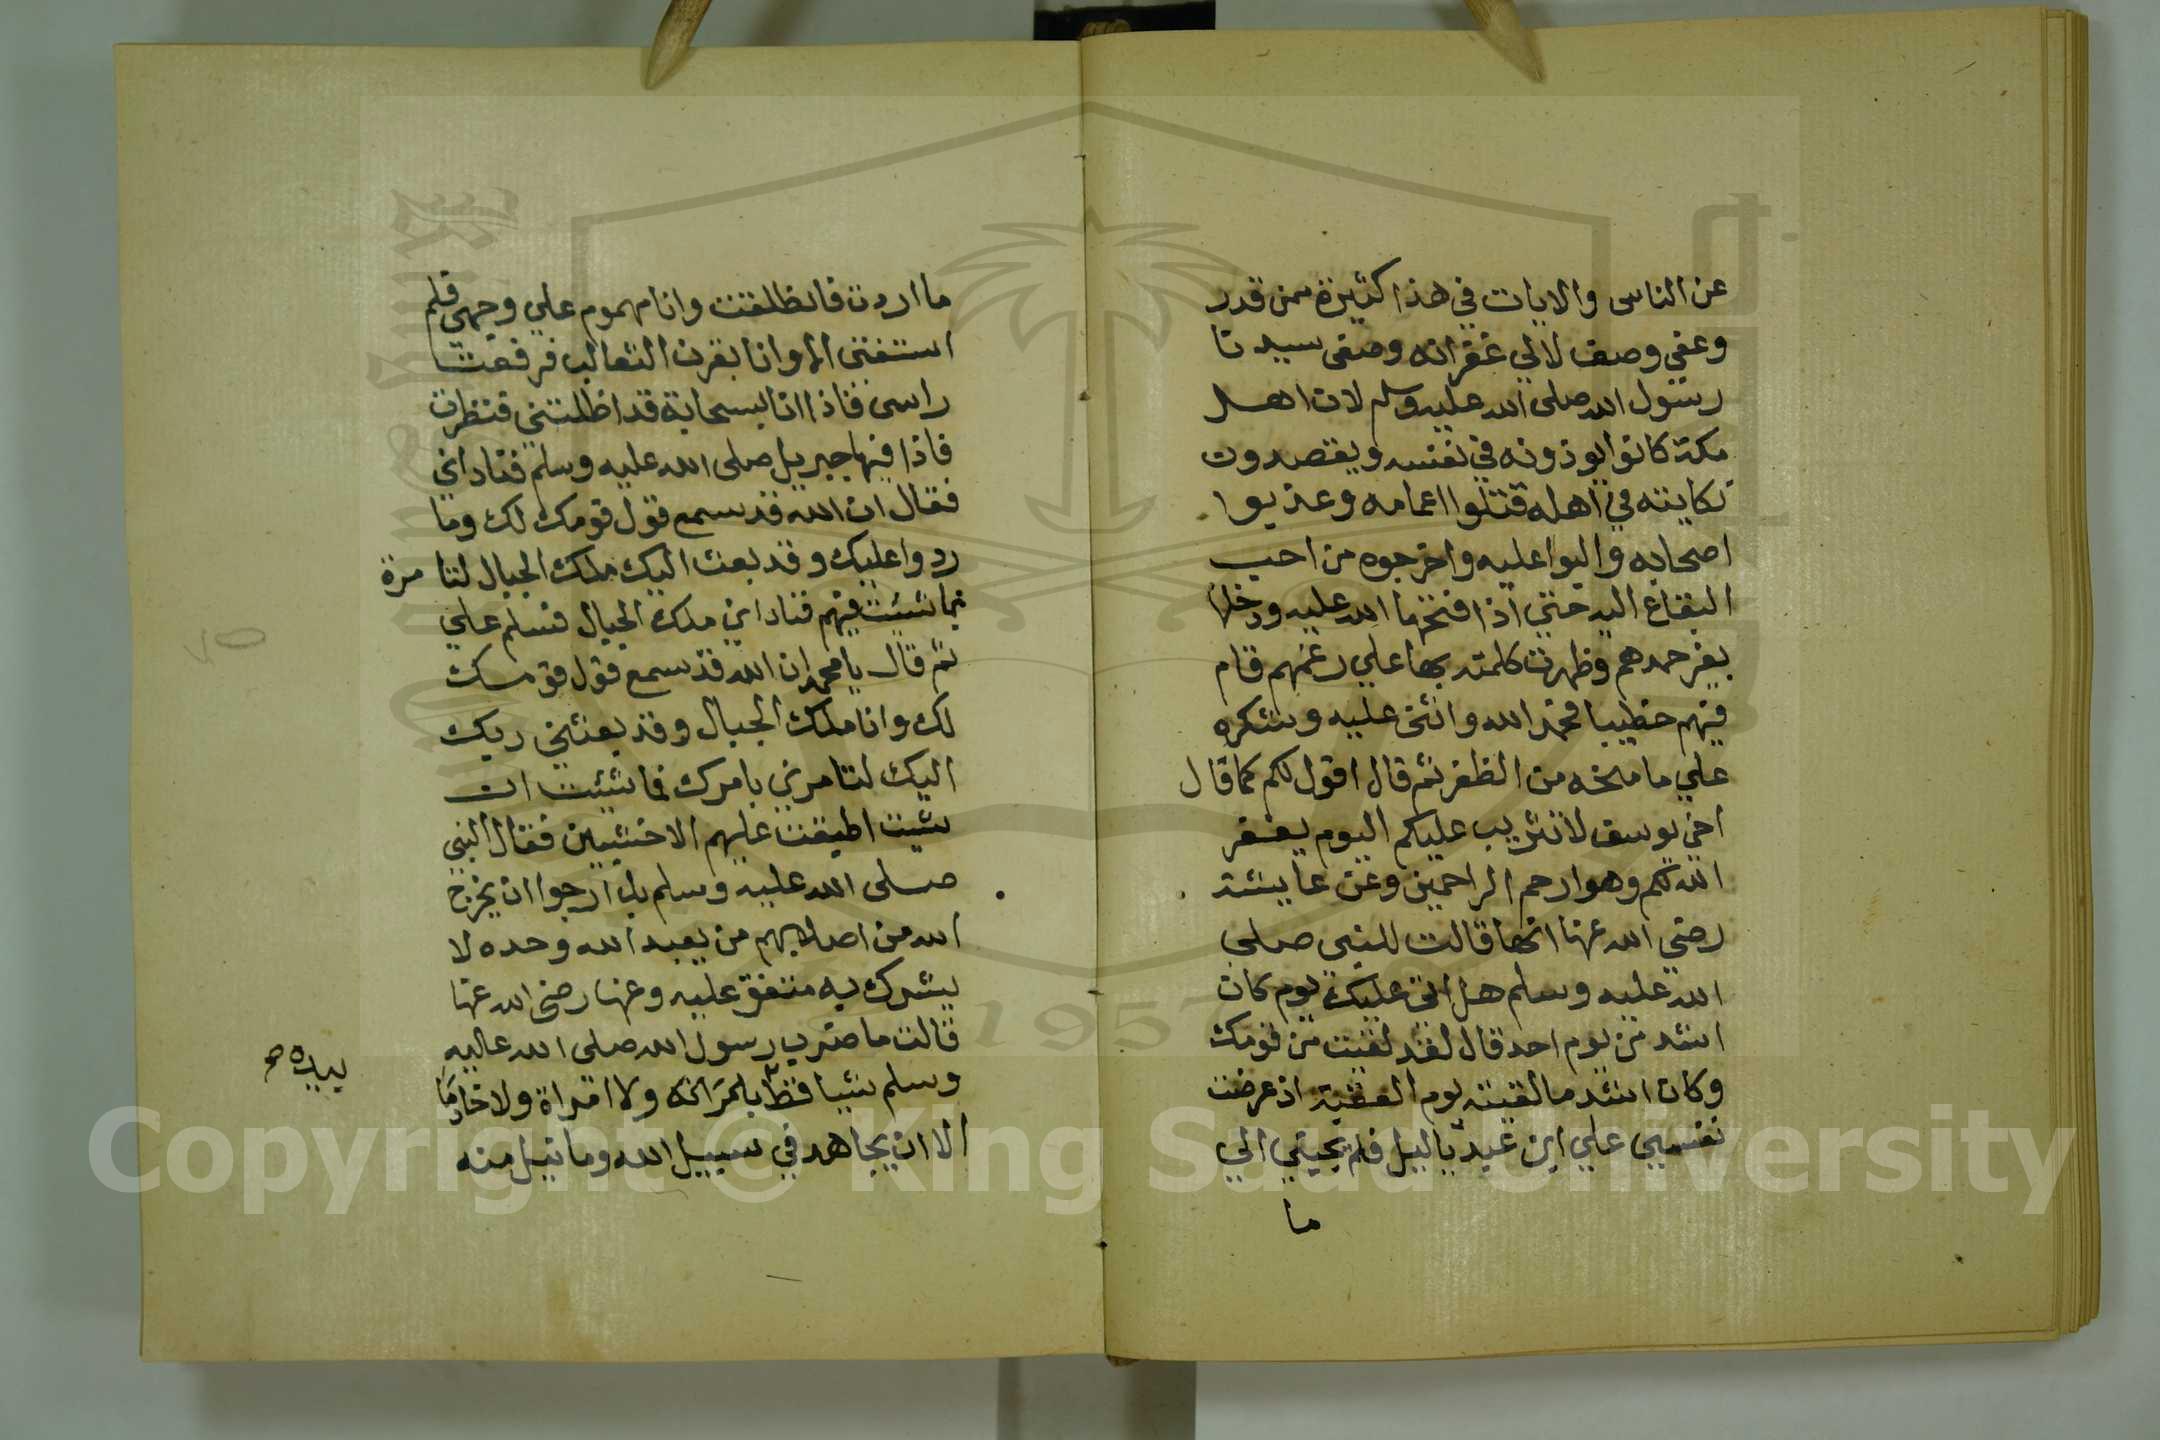 عن الناس والايات في هذا كثيرة ممن قدر
وعفي وصف لالي غفرانه وصفى سيدنا
رسول الله صلى الله عليه وسلم لان اهل
مكة كانوا يوذونه في نفسه ويقصدون
نكايته في اهله قتلوا اعمامه وعذبوا
اصحابه والبوا عليه واخرجوه من احب
البقاع اليه حتي اذا فتحها الله عليه ودخلها
بغير حمدهم وظهرت كلمته بها علي رغمهم قام
فيهم خطيبا فحمد الله واثنى عليه وشكره
علي ما منحه من الظفر ثم قال اقول لكم كما قال
اخي يوسف لا تثريب عليكم اليوم يغفر
الله لكم وهو ارحم الراحمين وعن عايشة
رضي الله عنها انها قالت للنبي صلى
الله عليه وسلم هل اتى عليك يوم كان
اشد من يوم احد قال لقد لقيت من قومك
وكان اشد ما لقيته يوم العقبة اذ عرضت
نفسي علي ابن عبد ياليل فلم يجبني الي
ما
ما اردت فانطلقت وانا مهموم علي وجهي فلم
استفق الا وانا بقرن الثعالب فرفعت
راسي فاذا انا بسحابة قد اظلتني فنظرت
فاذا فيها جبريل صلى الله عليه وسلم فناداني
فقال ان الله قد سمع قول قومك لك وما
ردوا عليك وقد بعث اليك ملك الجبال لتامره
بما شيت فيهم فناداني ملك الجبال فسلم علي
ثم قال يا محمد ان الله قد سمع قول قومك
لك وانا ملك الجبال وقد بعثني ربك
اليك لتامرني بامرك فما شيت ان
شيت اطبقت عليهم الاخشبين فقال النبي
صلى الله عليه وسلم بل ارجوا ان يخرج
الله من اصلابهم من يعبد الله وحده لا
يشرك به متفق عليه وعنها رضي الله عنها
قالت ما ضرب رسول الله صلى الله عليه
وسلم شيا قط ولا امراة ولا خادما
بيده صح
الا ان يجاهد في سبيل الله وما نيل منه
Copyright © King Saud University
1957